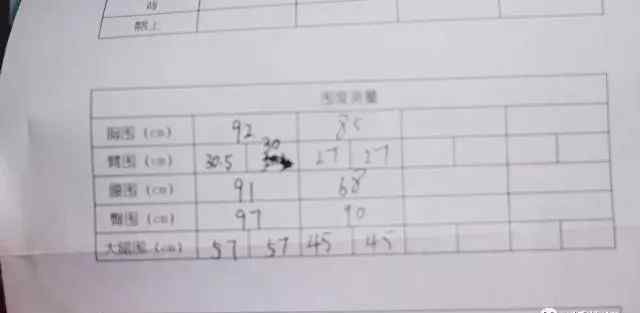 腿上
围度测量
胸围（cm） 92 85
臂围（cm） 30.5 30 27 27
腰围（cm） 91 68
臀围（cm） 97 90
大腿围（cm） 57 57 45 45